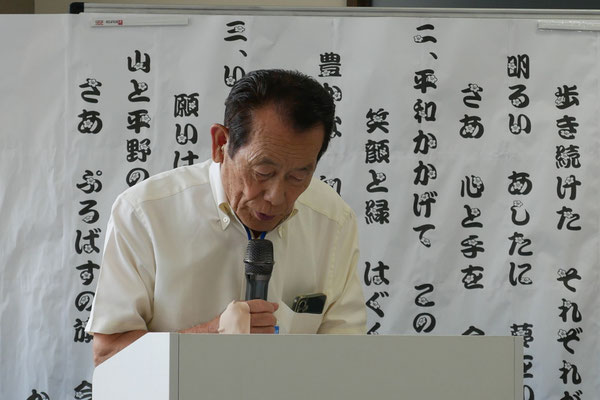 歩き続けた それぞれが
明るい あしたに 夢をの
さあ 心と手を 合
二、平和かかげて この
笑顔と緑 はぐく
豊かな
三、い
願いは
山と平野の
さあ ぷるばすの旅 合
か